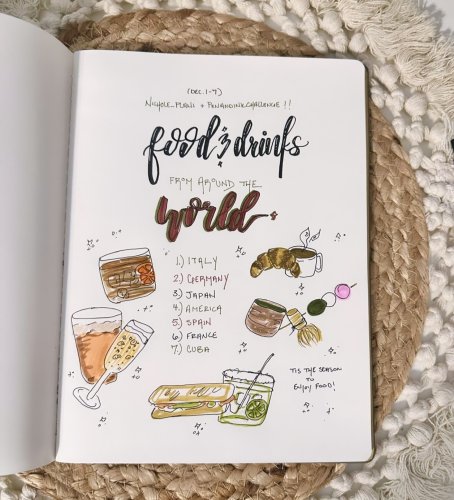 (DEC. 1-7)
NICHOLE_PLANS + PENANDINKCHALLENGE!!
food & drinks
FROM AROUND THE
World
1.) ITALY
2.) GERMANY
3.) JAPAN
4.) AMERICA
5.) SPAIN
6.) FRANCE
7.) CUBA
'TIS THE SEASON
TO
ENJOY FOOD!